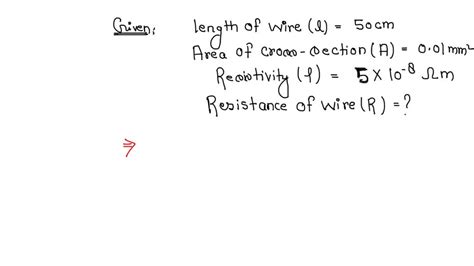 Given: length of wire (l) = 50cm
Area of cross-section (A) = 0.01mm²
Resistivity (ρ) = 5 × 10⁻⁸ Ωm
Resistance of wire (R) = ?
⇒